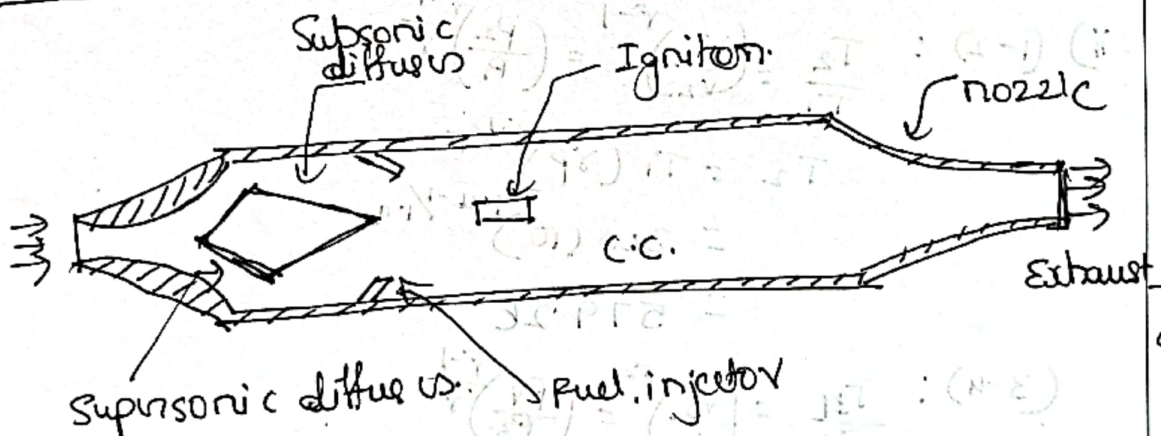 Subsonic
diffuser
Igniton.
nozzle
C.C.
Exhaust
Supersonic diffuser.
Fuel injector